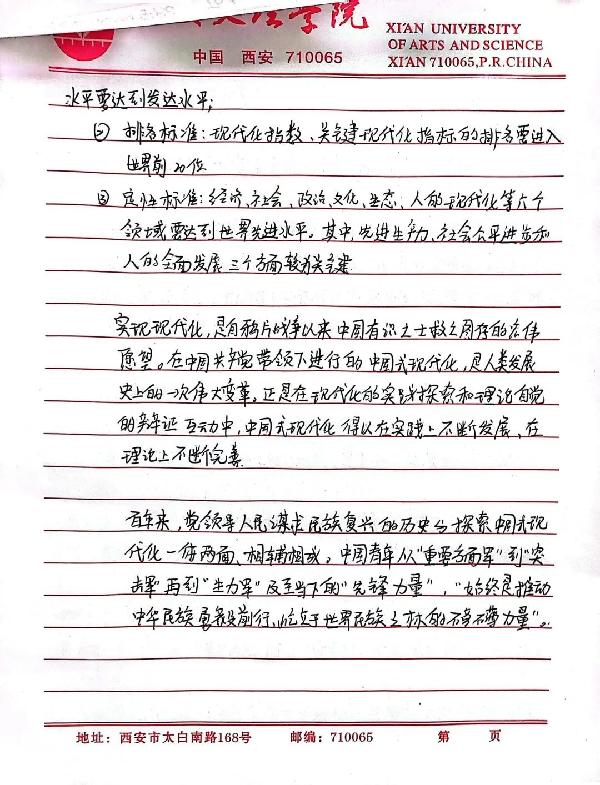 学院
XI'AN UNIVERSITY
OF ARTS AND SCIENCE
中国 西安 710065
XI'AN 710065,P.R.CHINA
水平要达到发达水平；
② 排名标准：现代化指数、关键现代化指标的排名要进入
世界前20位
③ 定性标准：经济、社会、政治、文化、生态、人的现代化等六个
领域要达到世界先进水平。其中，先进生产力、社会公平进步和
人的全面发展三个方面较为关键
实现现代化，是自鸦片战争以来中国有识之士救亡图存的宏伟
愿望。在中国共产党带领下进行的中国式现代化，是人类发展
史上的一次伟大变革。正是在现代化的实践探索和理论自觉
的辩证互动中，中国式现代化得以在实践上不断发展、在
理论上不断完善
百年来，党领导人民谋求民族复兴的历史与探索中国式现
代化一体两面、相辅相成，中国青年从“重要方面军”到“突
击军”再到“生力军”及至当下的“先锋力量”，“始终是推动
中华民族勇毅前行、屹立于世界民族之林的不可
力量”。
地址：西安市太白南路168号 邮编：710065 第 页